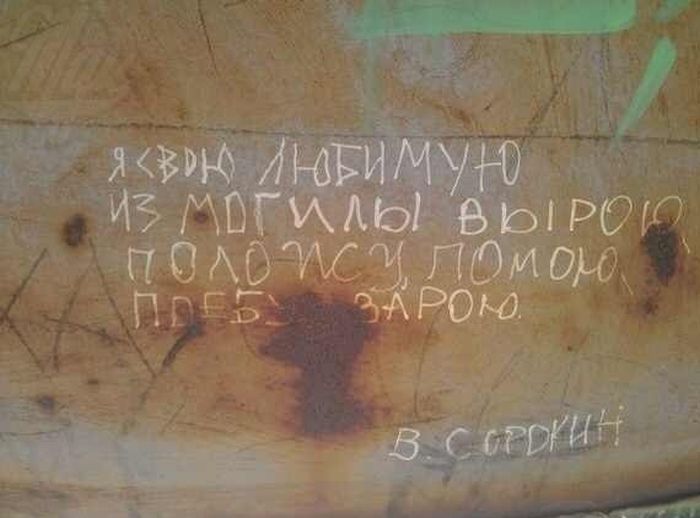 Я СВОЮ ЛЮБИМУЮ
ИЗ МОГИЛЫ ВЫРОЮ,
ПОЛОЖУ, ПОМОЮ,
ЗАРОЮ.
В. СОРОКИН